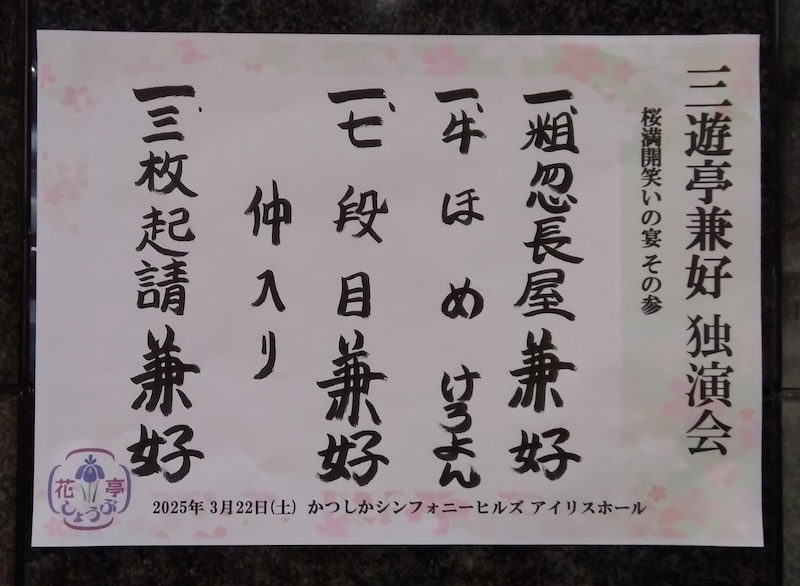 三遊亭兼好 独演会
桜満開笑いの宴 その参
一、粗忽長屋 兼好
一、牛ほめ けろよん
一、七段目 兼好
仲入り
一、三枚起請 兼好
2025年 3月22日(土) かつしかシンフォニーヒルズ アイリスホール
花亭
しょうぶ